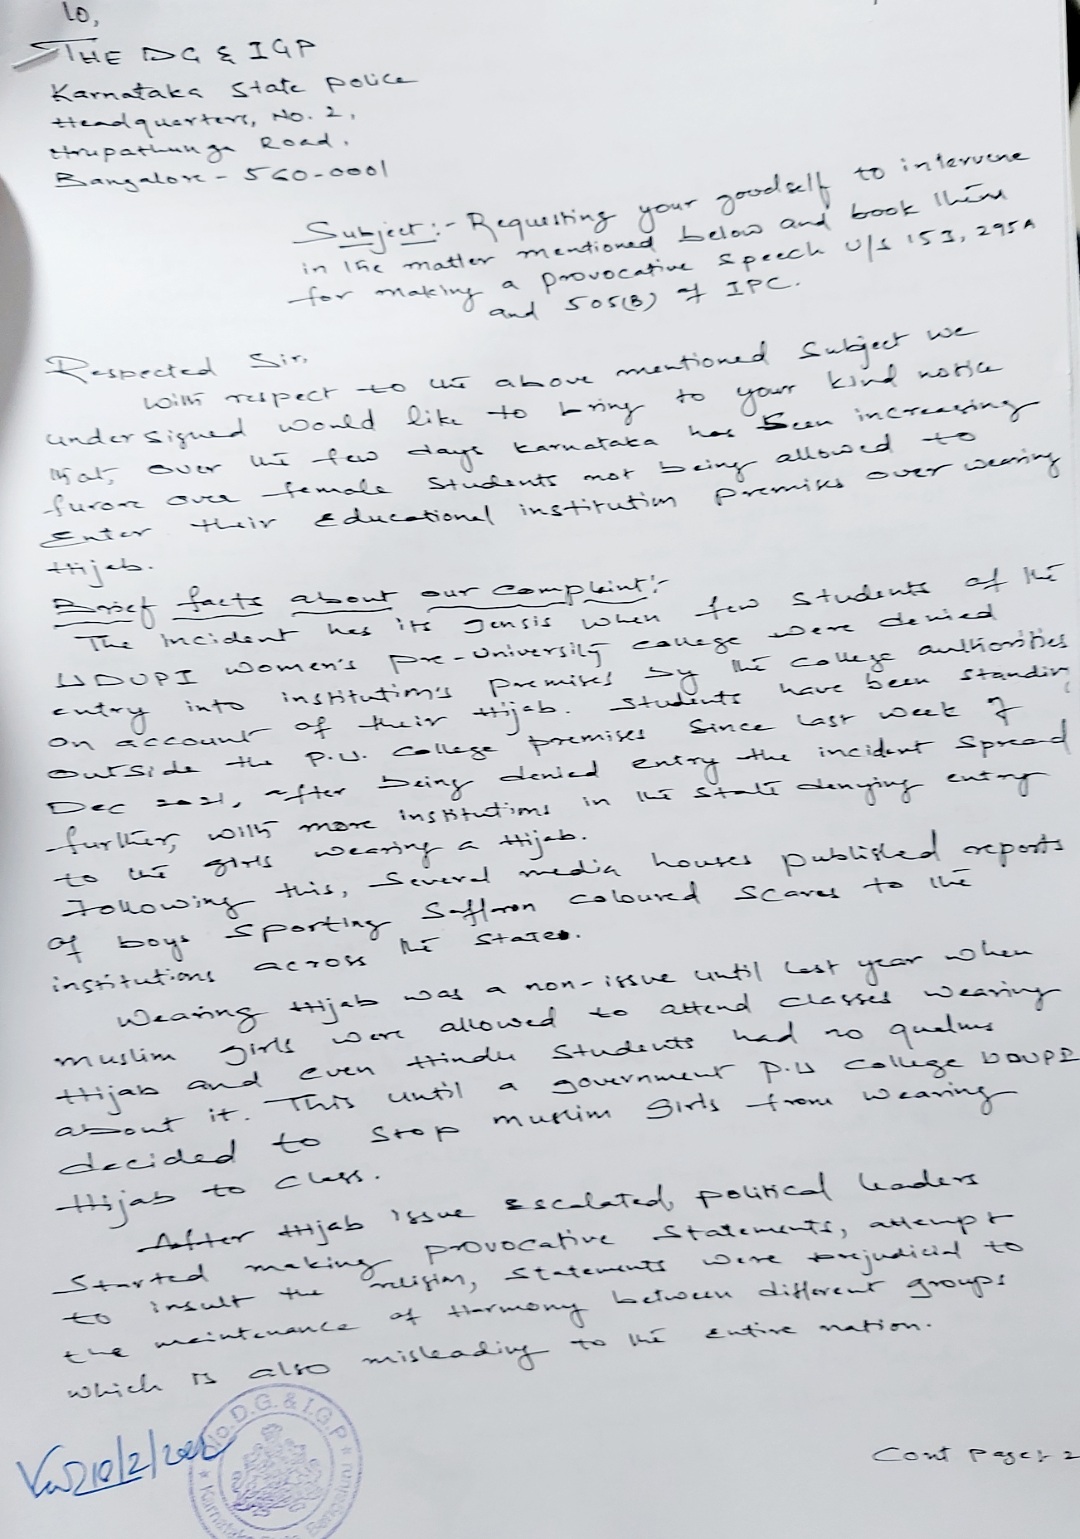 To,
THE DG & IGP
Karnataka State Police
Headquarters, No. 2,
Nrupathunga Road.
Bangalore - 560-0001
Subject:- Requesting your goodself to intervene
in the matter mentioned below and book them
for making a provocative speech u/s 153, 295A
and 505(B) of IPC.
Respected Sir,
With respect to the above mentioned Subject we
undersigned would like to bring to your kind notice
that, over the few days Karnataka has been increasing
furore over female students not being allowed to
Enter their Educational institution premises over wearing
Hijab.
Brief facts about our Complaint:-
The incident has its gensis when few students of the
UDUPI women's pre-University college were denied
entry into institution's premises by the college authorities
on account of their Hijab. Students have been standing
outside the P.U. College premises since last week of
Dec 2021, after being denied entry the incident spread
further, with more institutions in the state denying entry
to the girls wearing a Hijab.
Following this, several media houses published reports
of boys sporting Saffron coloured Scaves to the
institutions across the State.
Wearing Hijab was a non-issue until last year when
muslim girls were allowed to attend classes wearing
Hijab and even Hindu students had no qualms
about it. This until a government P.U College UDUPI
decided to stop muslim Girls from wearing
Hijab to class.
After Hijab issue Escalated, political leaders
Started making provocative Statements, attempt
to insult the religion, Statements were prejudicial to
the maintenance of Harmony between different groups
which is also misleading to the entire nation.
Cont Page:- 2
10/2/202
D.G. & I.G.P
Karnataka